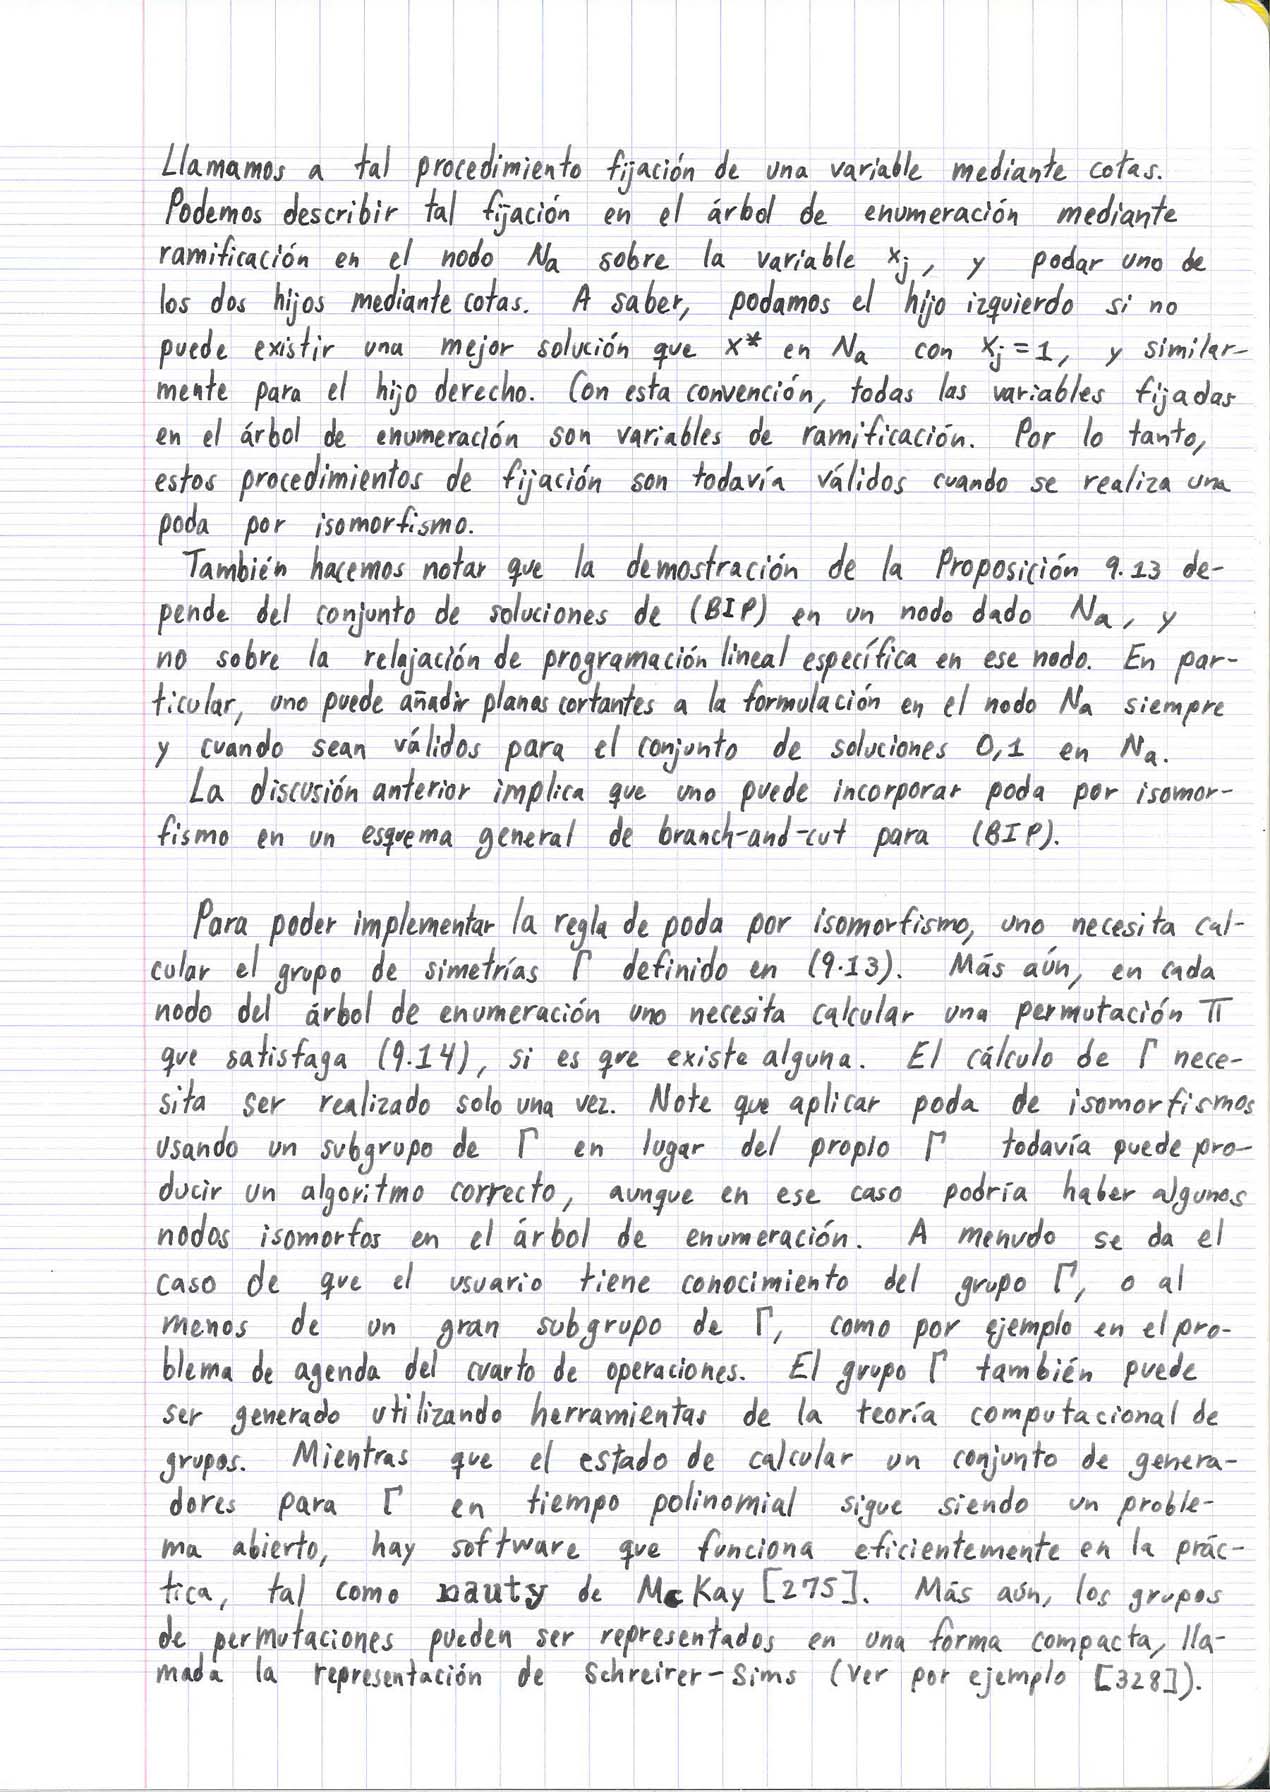 Llamamos a tal procedimiento fijación de una variable mediante cotas.
Podemos describir tal fijación en el árbol de enumeración mediante
ramificación en el nodo Na sobre la variable xj, y podar uno de
los dos hijos mediante cotas. A saber, podamos el hijo izquierdo si no
puede existir una mejor solución que x* en Na con xj = 1, y similar-
mente para el hijo derecho. Con esta convención, todas las variables fijadas
en el árbol de enumeración son variables de ramificación. Por lo tanto,
estos procedimientos de fijación son todavía válidos cuando se realiza una
poda por isomorfismo.
También hacemos notar que la demostración de la Proposición 9.13 de-
pende del conjunto de soluciones de (BIP) en un nodo dado Na, y
no sobre la relajación de programación lineal específica en ese nodo. En par-
ticular, uno puede añadir planos cortantes a la formulación en el nodo Na siempre
y cuando sean válidos para el conjunto de soluciones 0,1 en Na.
La discusión anterior implica que uno puede incorporar poda por isomor-
fismo en un esquema general de branch-and-cut para (BIP).
Para poder implementar la regla de poda por isomorfismo, uno necesita cal-
cular el grupo de simetrías Γ definido en (9.13). Más aún, en cada
nodo del árbol de enumeración uno necesita calcular una permutación π
que satisfaga (9.14), si es que existe alguna. El cálculo de Γ nece-
sita ser realizado solo una vez. Note que aplicar poda de isomorfismos
usando un subgrupo de Γ en lugar del propio Γ todavía puede pro-
ducir un algoritmo correcto, aunque en ese caso podría haber algunos
nodos isomorfos en el árbol de enumeración. A menudo se da el
caso de que el usuario tiene conocimiento del grupo Γ, o al
menos de un gran subgrupo de Γ, como por ejemplo en el pro-
blema de agenda del cuarto de operaciones. El grupo Γ también puede
ser generado utilizando herramientas de la teoría computacional de
grupos. Mientras que el estado de calcular un conjunto de genera-
dores para Γ en tiempo polinomial sigue siendo un proble-
ma abierto, hay software que funciona eficientemente en la prác-
tica, tal como nauty de McKay [275]. Más aún, los grupos
de permutaciones pueden ser representados en una forma compacta, lla-
mada la representación de Schreirer-Sims (ver por ejemplo [328]).